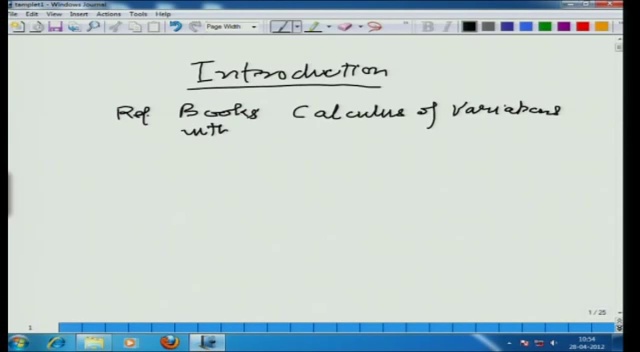 templet1 - Windows Journal
File Edit View Insert Actions Tools Help
Page Width
B I
Introduction
Ref. Books Calculus of Variations
with
1 / 25
1
10:54
28-04-2012